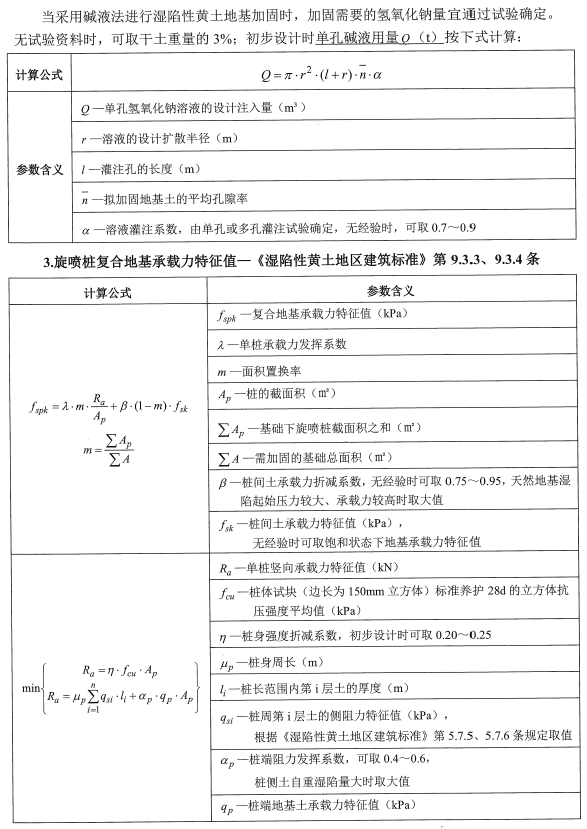 当采用碱液法进行湿陷性黄土地基加固时，加固需要的氢氧化钠量宜通过试验确定。
无试验资料时，可取干土重量的 3%；初步设计时单孔碱液用量 Q（t）按下式计算：
计算公式
Q = π · r² · (l + r) · n̄ · α
参数含义
Q —单孔氢氧化钠溶液的设计注入量（m³）
r —溶液的设计扩散半径（m）
l —灌注孔的长度（m）
n̄ —拟加固地基土的平均孔隙率
α —溶液灌注系数，由单孔或多孔灌注试验确定，无经验时，可取 0.7～0.9
3.旋喷桩复合地基承载力特征值—《湿陷性黄土地区建筑标准》第 9.3.3、9.3.4 条
计算公式
参数含义
f_spk = λ · m · R_a / A_p + β · (1 − m) · f_sk
m = ∑A_p / ∑A
f_spk —复合地基承载力特征值（kPa）
λ —单桩承载力发挥系数
m —面积置换率
A_p —桩的截面积（㎡）
∑A_p —基础下旋喷桩截面积之和（㎡）
∑A —需加固的基础总面积（㎡）
β —桩间土承载力折减系数，无经验时可取 0.75～0.95，天然地基湿
陷起始压力较大、承载力较高时取大值
f_sk —桩间土承载力特征值（kPa），
无经验时可取饱和状态下地基承载力特征值
min{ R_a = η · f_cu · A_p
R_a = μ_p ∑_{i=1}^{n} q_si · l_i + α_p · q_p · A_p }
R_a —单桩竖向承载力特征值（kN）
f_cu —桩体试块（边长为 150mm 立方体）标准养护 28d 的立方体抗
压强度平均值（kPa）
η —桩身强度折减系数，初步设计时可取 0.20～0.25
μ_p —桩身周长（m）
l_i —桩长范围内第 i 层土的厚度（m）
q_si —桩周第 i 层土的侧阻力特征值（kPa），
根据《湿陷性黄土地区建筑标准》第 5.7.5、5.7.6 条规定取值
α_p —桩端阻力发挥系数，可取 0.4～0.6，
桩侧土自重湿陷量大时取大值
q_p —桩端地基土承载力特征值（kPa）